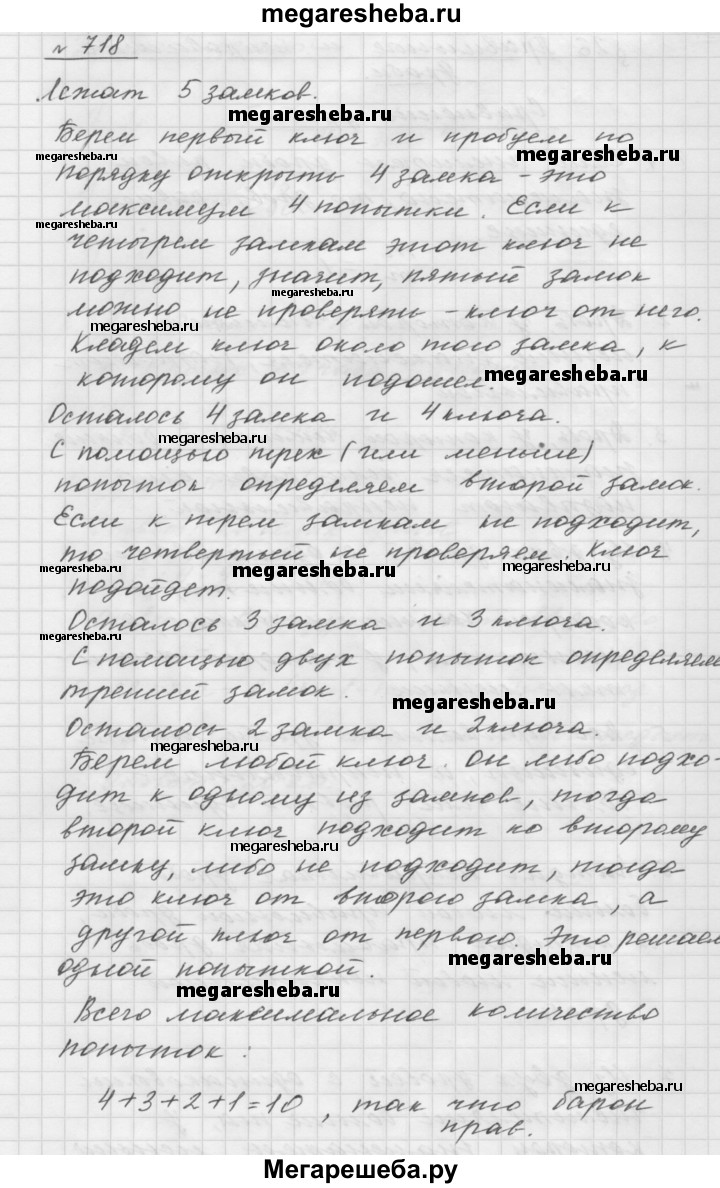 megaresheba.ru
№ 718
Лежат 5 замков.
megaresheba.ru
Берем первый ключ и пробуем по
megaresheba.ru
megaresheba.ru
порядку открыть 4 замка - это
максимум 4 попытки. Если к
megaresheba.ru
четырем замкам этот ключ не
подходит, значит, пятый замок
megaresheba.ru
можно не проверять - ключ от него.
megaresheba.ru
Кладем ключ около того замка, к
которому он подошел.
megaresheba.ru
Осталось 4 замка и 4 ключа.
megaresheba.ru
С помощью трех (или меньше)
попыток определяем второй замок.
Если к трем замкам не подходит,
то четвертый не проверяем. Ключ
megaresheba.ru
megaresheba.ru
megaresheba.ru
подойдет.
Осталось 3 замка и 3 ключа.
megaresheba.ru
С помощью двух попыток определяем
третий замок.
megaresheba.ru
Осталось 2 замка и 2 ключа.
megaresheba.ru
Берем любой ключ. Он либо подхо-
дит к одному из замков, тогда
второй ключ подходит ко второму
megaresheba.ru
замку, либо не подходит, тогда
это ключ от второго замка, а
другой ключ от первого. Это решаем
megaresheba.ru
одной попыткой.
megaresheba.ru
Всего максимальное количество
попыток:
megaresheba.ru
4+3+2+1=10, так что барон
прав.
Мегарешеба.ру